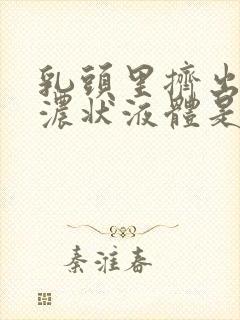 乳頭里擠出
濃狀液體是
秦淮春